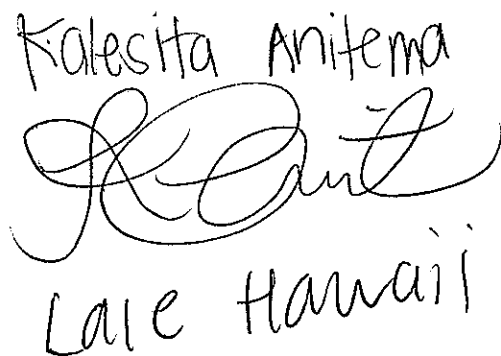 Kalesita Anitema
Laie Hawaii